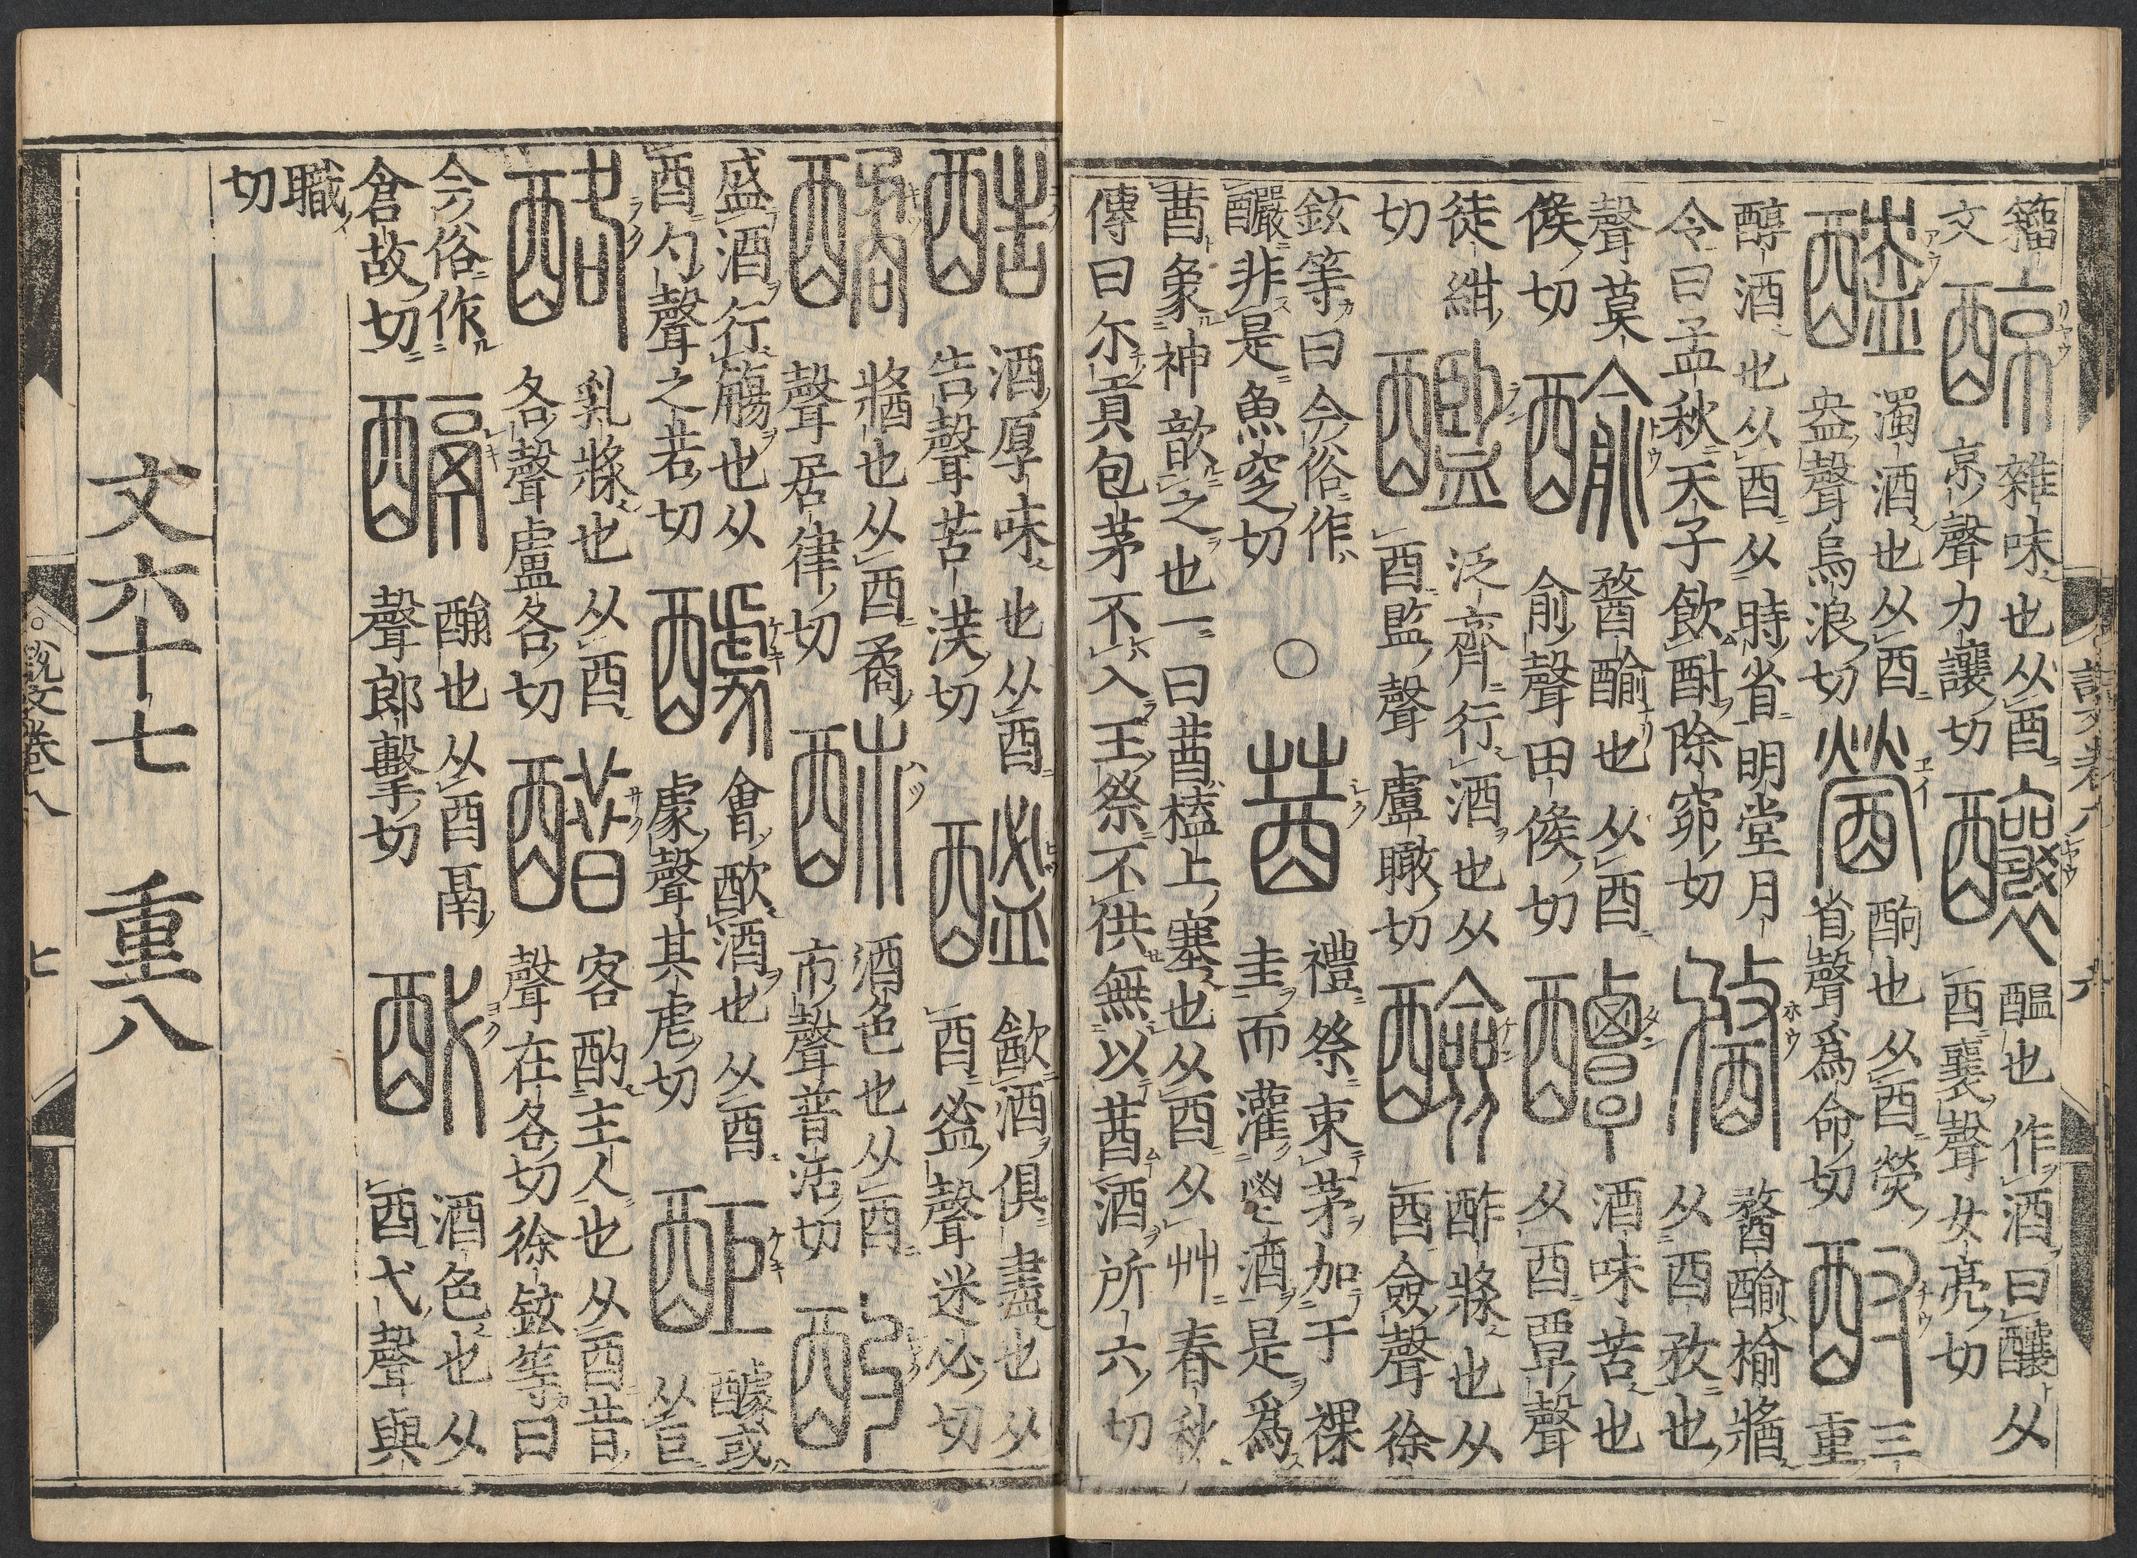 籀
文
䣼
雜味也从酉
京聲力讓切
釀
醞也作酒曰釀从
酉襄聲女亮切
醠
濁酒也从酉
盎聲烏浪切
醟
酗也从酉熒
省聲爲命切
酎
三
重
醇酒也从酉从時省明堂月
令曰孟秋天子飲酎除茆切
榆牆
从酉孜也
聲莫
候切
也从酉
俞聲田候切
醰
酒味苦也
从酉覃聲
徒紺
切
泛齊行酒也从
酉監聲盧瞰切
醶
酢漿也从
酉僉聲徐
鉉等曰今俗作
釅非是魚窆切
○
莤
禮祭束茅加于祼
圭而灌鬯酒是爲
莤象神歆之也一曰莤榼上塞也从酉从艸春秋
傳曰尔貢包茅不入王祭不供無以莤酒所六切
酷
酒厚味也从酉
告聲苦漢切
歙酒俱盡也从
酉聲迷必切
牆也从酉矞
聲居律切
酒色也从酉
巿聲普活切
酌
盛酒行觴也从
酉勺聲之若切
醵
會歙酒也从酉
豦聲其虐切
醵或
从巨
酪
乳漿也从酉
各聲盧各切
醋
客酌主人也从酉昔
聲在各切徐鉉等曰
今俗作
倉故切
也从酉鬲
聲郎擊切
酒色也从
酉弋聲與
職
切
文六十七 重八
説文卷八
七